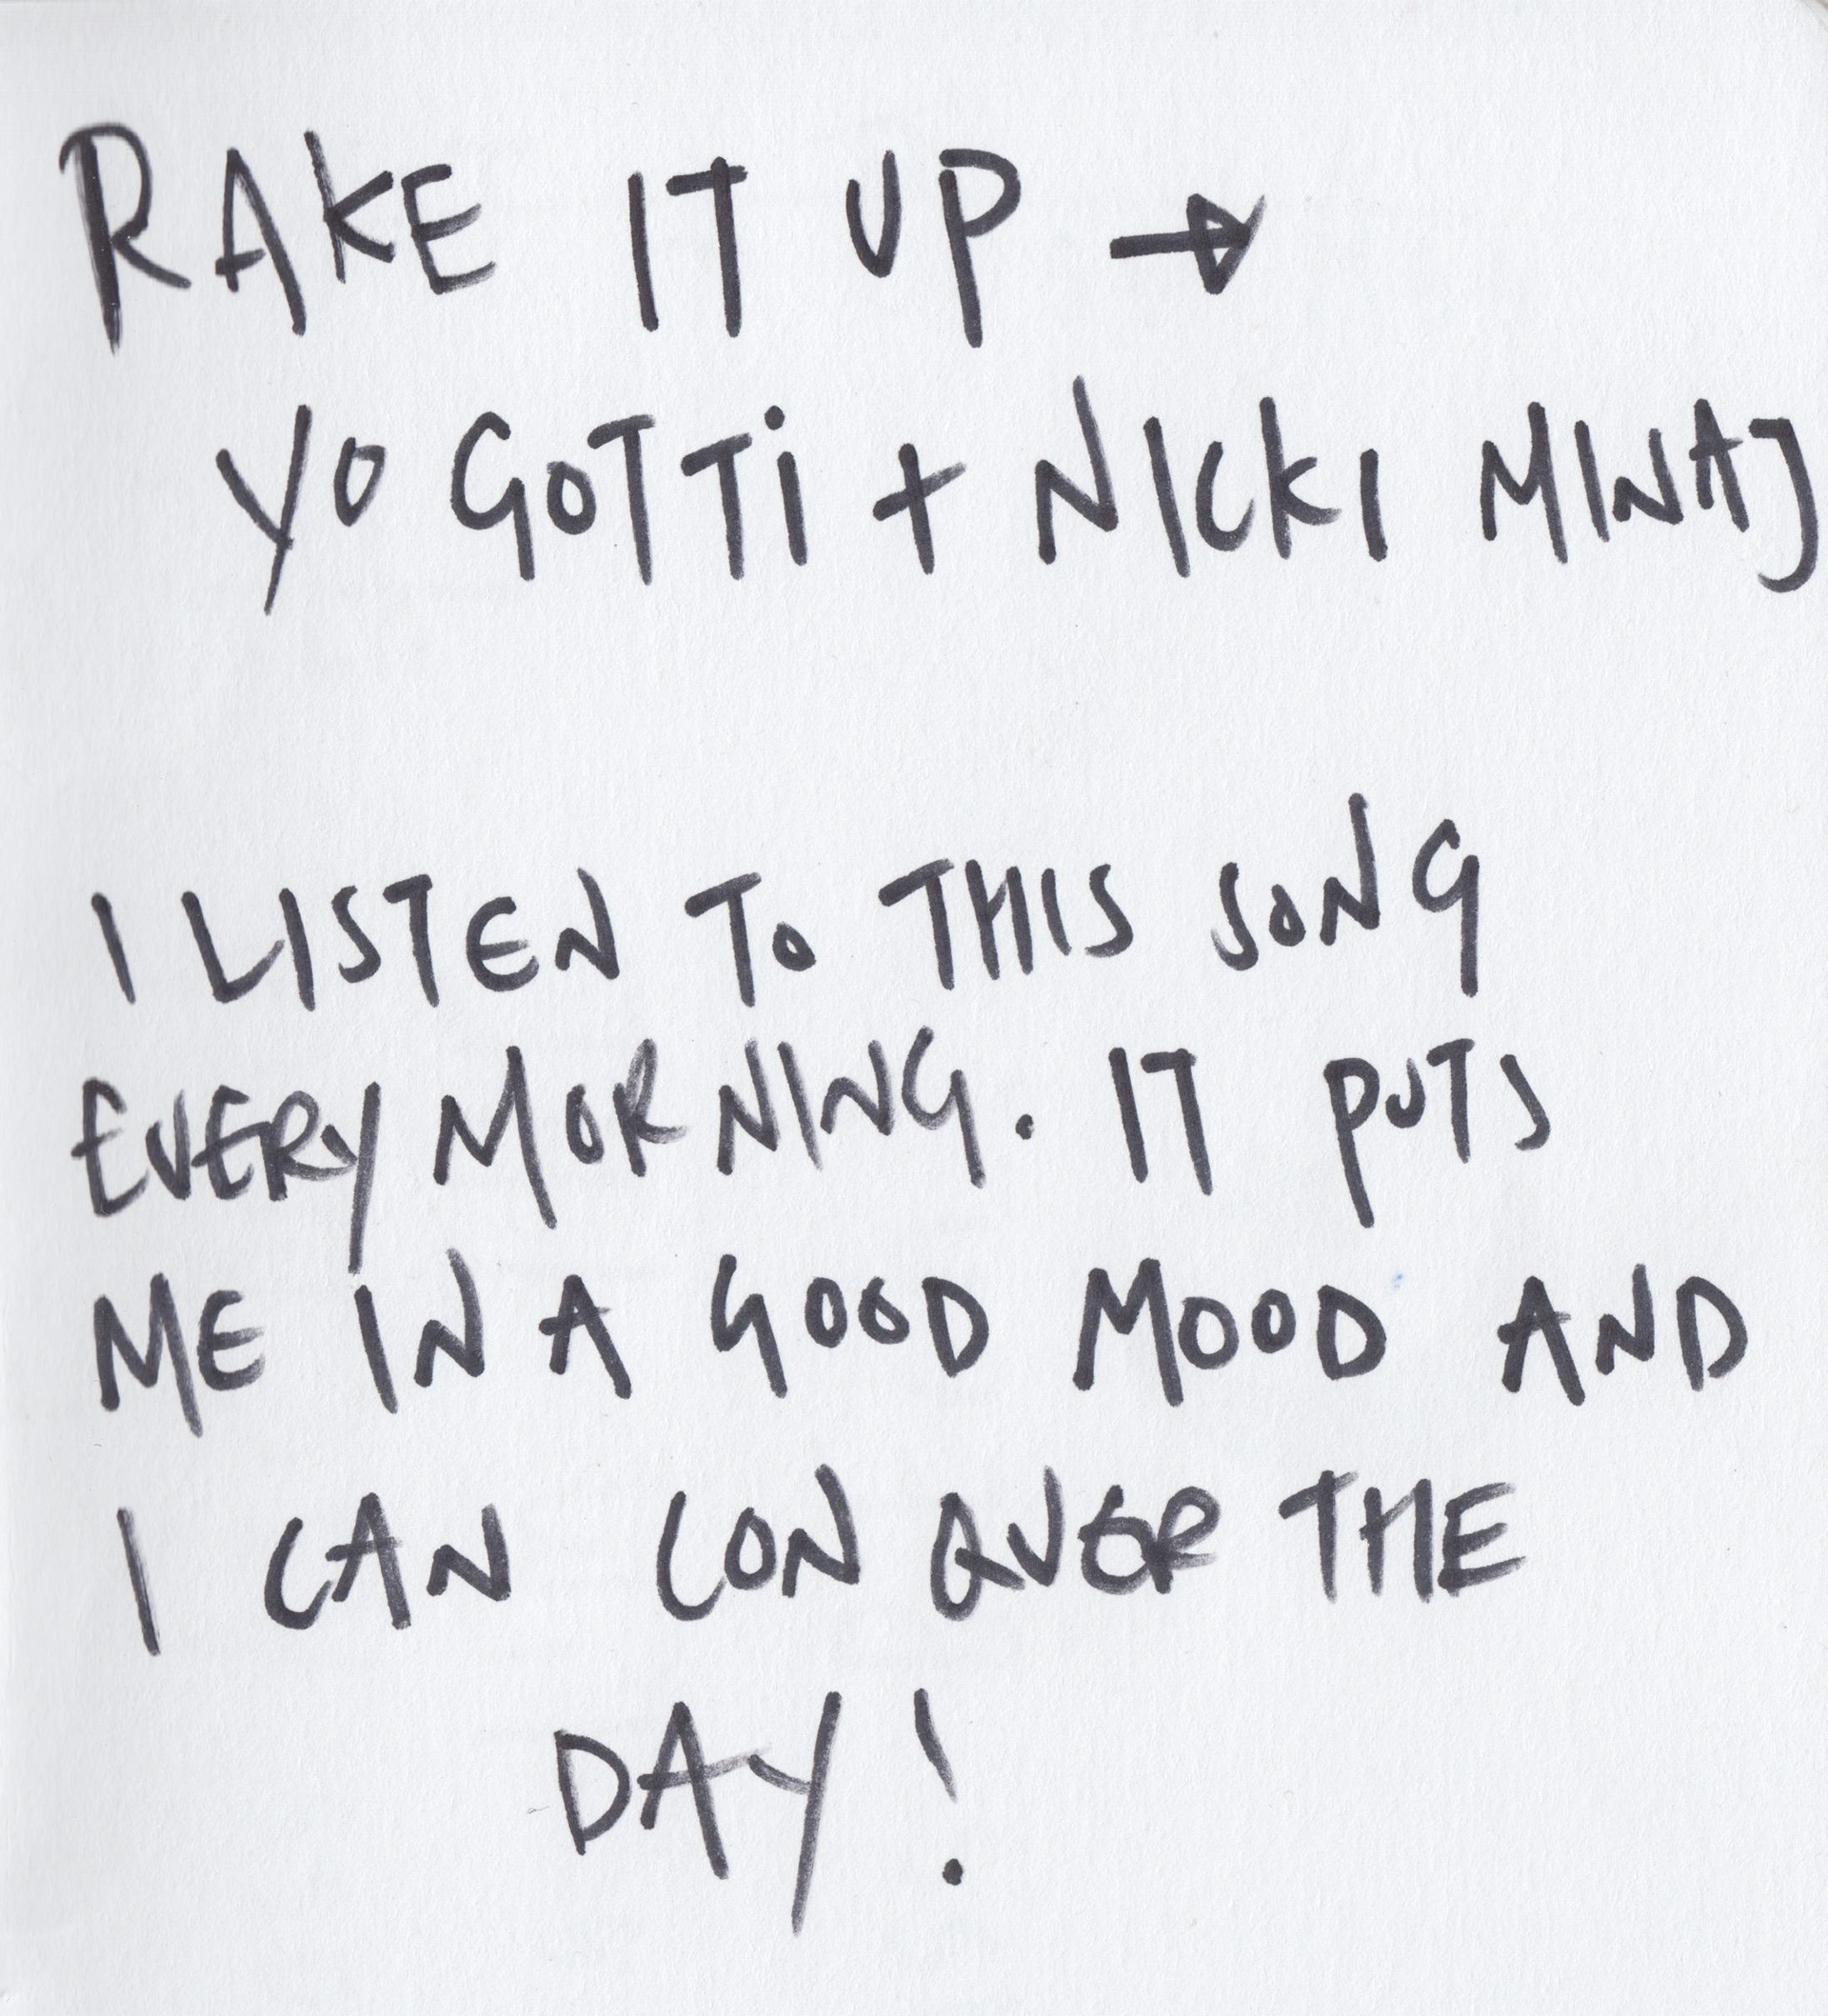 RAKE IT UP →
YO GOTTi + NICKI MINAJ
I LISTEN TO THIS SONG
EVERY MORNING. IT PUTS
ME IN A GOOD MOOD AND
I CAN CONQUER THE
DAY!